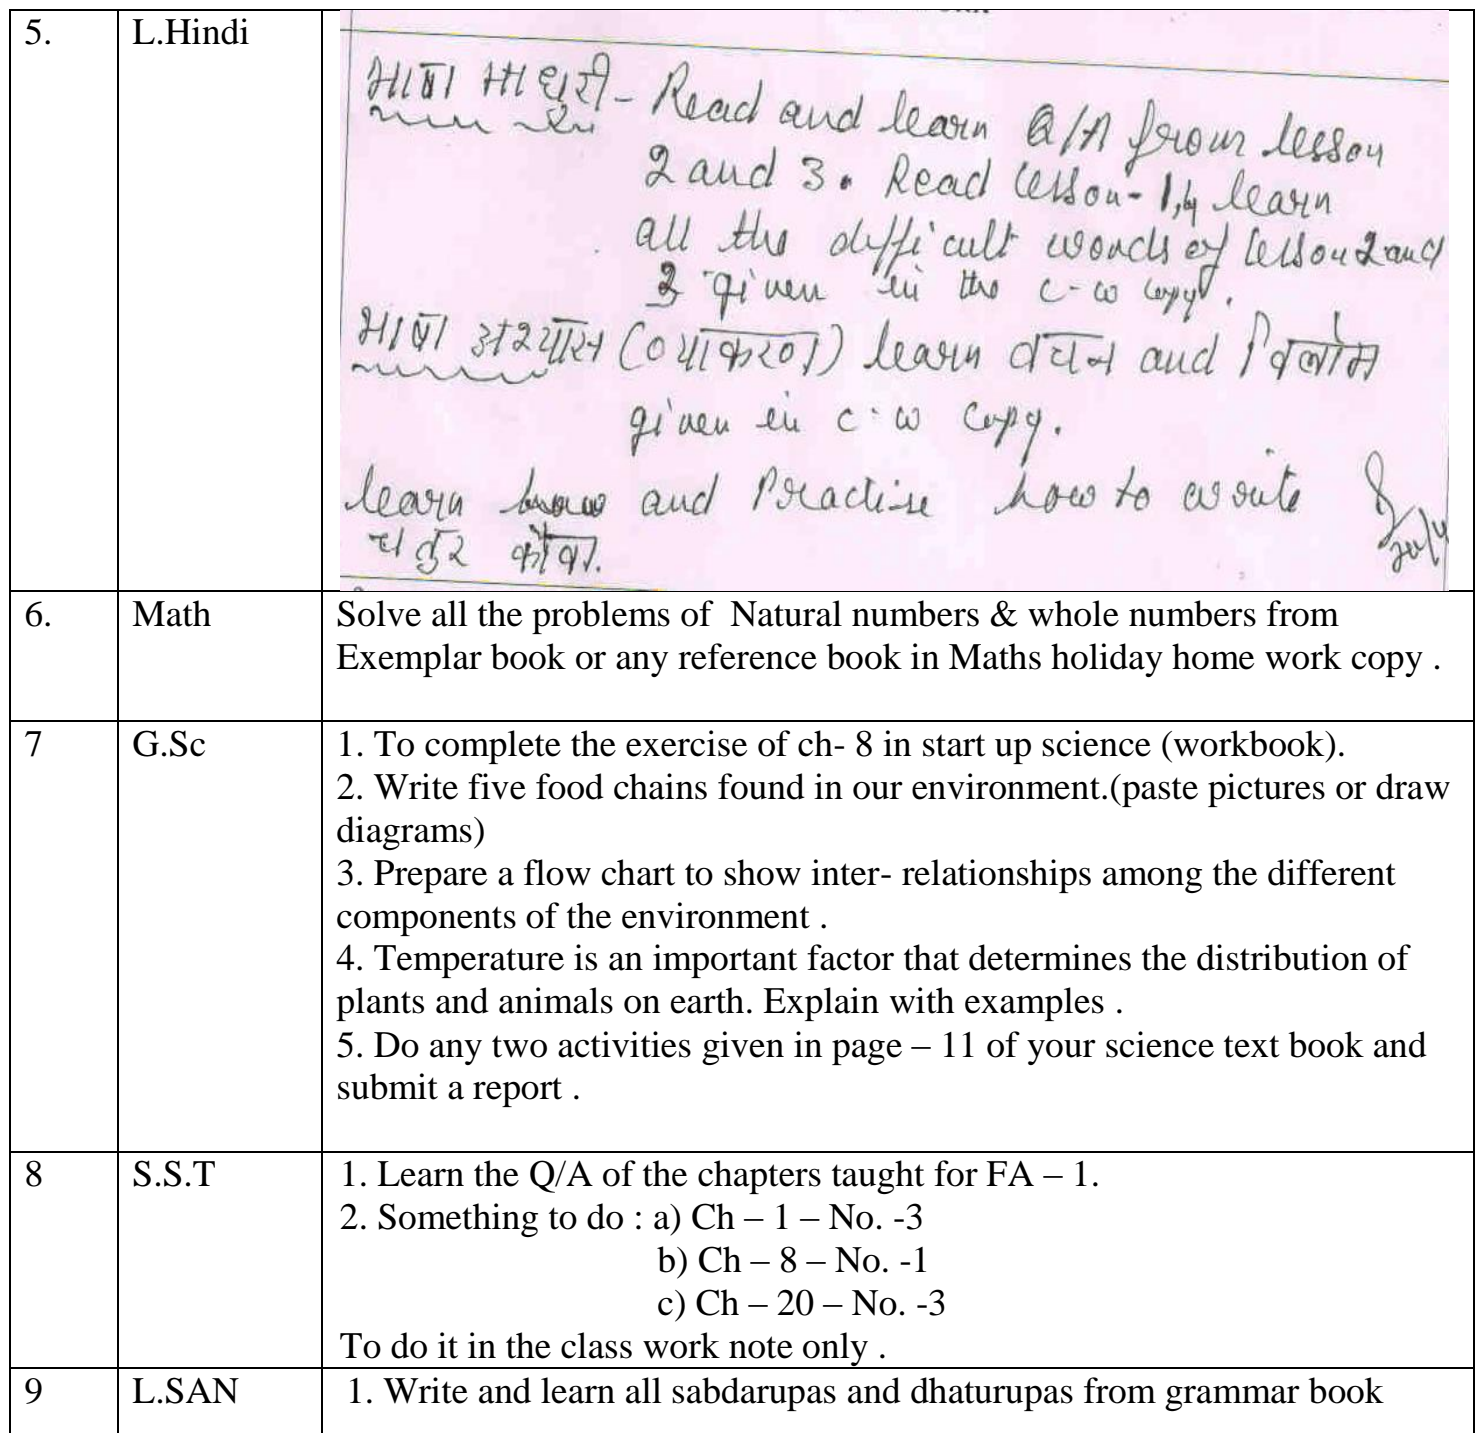 5. L.Hindi
भाषा माधुरी - Read and learn Q/A from lesson
2 and 3. Read lesson-1,4 learn
all the difficult words of lesson 2 and
3 given in the c-w copy.
भाषा अभ्यास (व्याकरण) learn वचन and विलोम
given in c-w copy.
learn and Practise how to write
चतुर कौवा.
6. Math Solve all the problems of Natural numbers & whole numbers from
Exemplar book or any reference book in Maths holiday home work copy .
7 G.Sc 1. To complete the exercise of ch- 8 in start up science (workbook).
2. Write five food chains found in our environment.(paste pictures or draw
diagrams)
3. Prepare a flow chart to show inter- relationships among the different
components of the environment .
4. Temperature is an important factor that determines the distribution of
plants and animals on earth. Explain with examples .
5. Do any two activities given in page – 11 of your science text book and
submit a report .
8 S.S.T 1. Learn the Q/A of the chapters taught for FA – 1.
2. Something to do : a) Ch – 1 – No. -3
b) Ch – 8 – No. -1
c) Ch – 20 – No. -3
To do it in the class work note only .
9 L.SAN 1. Write and learn all sabdarupas and dhaturupas from grammar book